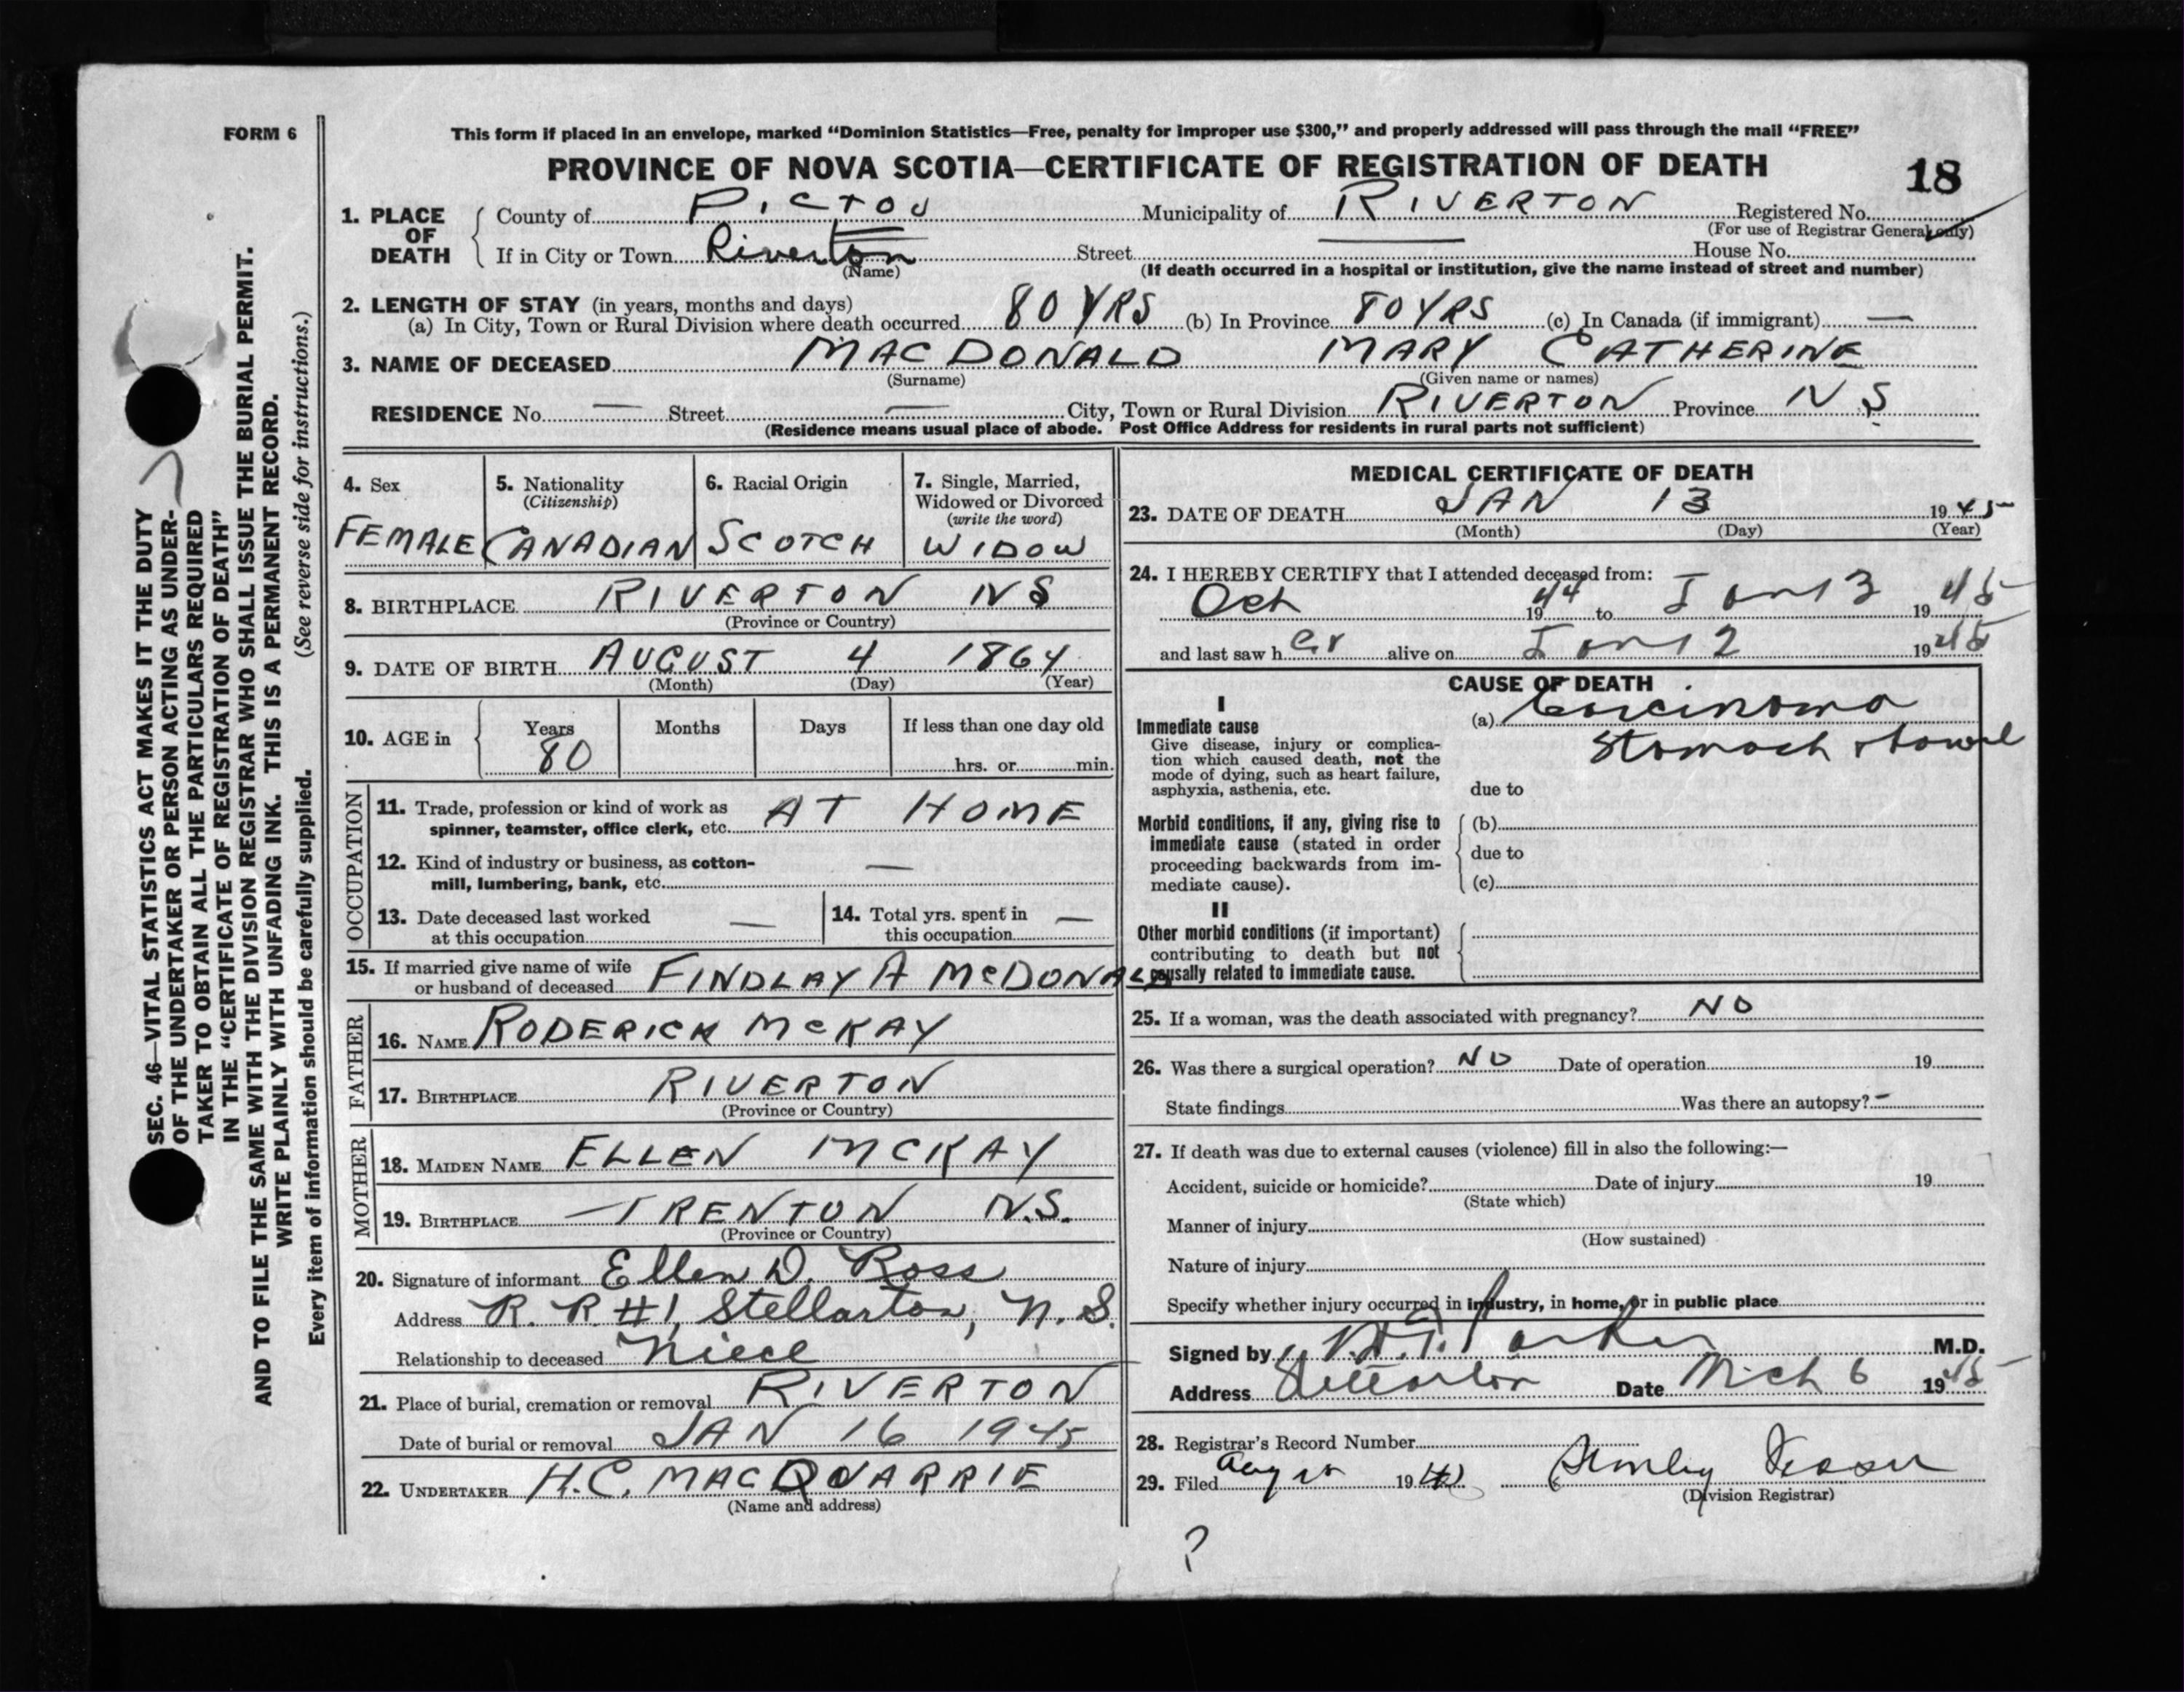 FORM 6
This form if placed in an envelope, marked “Dominion Statistics—Free, penalty for improper use $300,” and properly addressed will pass through the mail “FREE”
PROVINCE OF NOVA SCOTIA—CERTIFICATE OF REGISTRATION OF DEATH
18
1. PLACE OF DEATH
County of PICTOU Municipality of RIVERTON Registered No.
(For use of Registrar General only)
If in City or Town Riverton Street House No.
(Name) (If death occurred in a hospital or institution, give the name instead of street and number)
2. LENGTH OF STAY (in years, months and days)
(a) In City, Town or Rural Division where death occurred 80 YRS (b) In Province 80 YRS (c) In Canada (if immigrant) —
3. NAME OF DECEASED MACDONALD MARY CATHERINE
(Surname) (Given name or names)
RESIDENCE No. — Street — City, Town or Rural Division RIVERTON Province N S
(Residence means usual place of abode. Post Office Address for residents in rural parts not sufficient)
4. Sex
FEMALE
5. Nationality
(Citizenship)
CANADIAN
6. Racial Origin
SCOTCH
7. Single, Married,
Widowed or Divorced
(write the word)
WIDOW
8. BIRTHPLACE RIVERTON N S
(Province or Country)
9. DATE OF BIRTH AUGUST 4 1864
(Month) (Day) (Year)
10. AGE in
Years Months Days If less than one day old
80
hrs. or min.
OCCUPATION
11. Trade, profession or kind of work as
spinner, teamster, office clerk, etc. AT HOME
12. Kind of industry or business, as cotton-
mill, lumbering, bank, etc. —
13. Date deceased last worked
at this occupation —
14. Total yrs. spent in
this occupation —
15. If married give name of wife
or husband of deceased FINDLAY A McDONALD
FATHER
16. NAME RODERICK McKAY
17. BIRTHPLACE RIVERTON
(Province or Country)
MOTHER
18. MAIDEN NAME ELLEN McKAY
19. BIRTHPLACE TRENTON N.S.
(Province or Country)
20. Signature of informant Ellen D. Ross
Address R. R. #1, Stellarton, N. S.
Relationship to deceased Niece
21. Place of burial, cremation or removal RIVERTON
Date of burial or removal JAN 16 1945
22. UNDERTAKER H.C. MACQUARRIE
(Name and address)
MEDICAL CERTIFICATE OF DEATH
23. DATE OF DEATH JAN 13 1945
(Month) (Day) (Year)
24. I HEREBY CERTIFY that I attended deceased from:
Oct 1944 to Jan 13 1945
and last saw her alive on Jan 12 1945
CAUSE OF DEATH
I
Immediate cause
Give disease, injury or complica-
tion which caused death, not the
mode of dying, such as heart failure,
asphyxia, asthenia, etc.
(a) Carcinoma
Stomach & bowel
due to
Morbid conditions, if any, giving rise to
immediate cause (stated in order
proceeding backwards from im-
mediate cause).
(b)
due to
(c)
II
Other morbid conditions (if important)
contributing to death but not
causally related to immediate cause.
25. If a woman, was the death associated with pregnancy? NO
26. Was there a surgical operation? NO Date of operation 19
State findings Was there an autopsy? -
27. If death was due to external causes (violence) fill in also the following:—
Accident, suicide or homicide? Date of injury 19
(State which)
Manner of injury
(How sustained)
Nature of injury
Specify whether injury occurred in industry, in home, or in public place
Signed by Parker M.D.
Address Stellarton Date Mch 6 1945
28. Registrar's Record Number
29. Filed Aug 19 Fraser
(Division Registrar)
?
SEC. 46—VITAL STATISTICS ACT MAKES IT THE DUTY
OF THE UNDERTAKER OR PERSON ACTING AS UNDER-
TAKER TO OBTAIN ALL THE PARTICULARS REQUIRED
IN THE “CERTIFICATE OF REGISTRATION OF DEATH”
AND TO FILE THE SAME WITH THE DIVISION REGISTRAR WHO SHALL ISSUE THE BURIAL PERMIT.
WRITE PLAINLY WITH UNFADING INK. THIS IS A PERMANENT RECORD.
Every item of information should be carefully supplied. (See reverse side for instructions.)